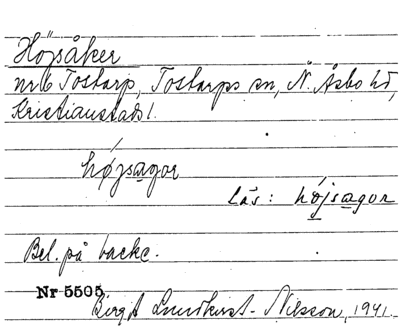 Höjsåker
nr 6 Tostarp, Tostarps sn, N. Åsbo hd,
Kristianstads l.
højsagor
Läs: højsagor
Bel. på backe.
Nr 5505
Birgit Lundkvist-Nilsson, 1941.